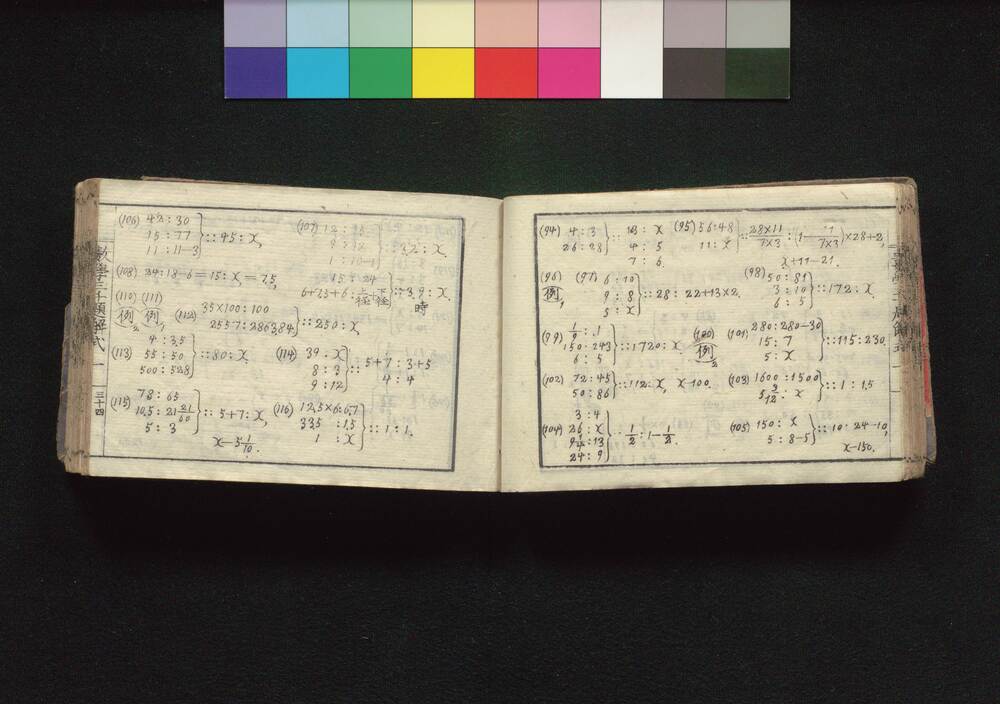 (94) 4 : 3
26 : 28 } :: 13 : x
4 : 5
7 : 6
(95) 56 : 48
11 : x } :: 28×11/7×3 : (1-11/7×3)×28+2,
x+11-21.
(96) 例,
(97) 6 : 10
9 : 8
5 : x } :: 28 : 22+13×2.
(98) 50 : 81
3 : 10
6 : 5 } :: 172 : x.
(99)
150 : 243
6 : 5 } :: 1720 : x.
(100) 例2
(101) 280 : 280-30
15 : 7
5 : x } :: 115 : 230.
(102) 72 : 45
50 : 86 } :: 112 : x, x-100.
(103) 1600 : 1500
5 9/12 : x } :: 1 : 1.5
(104) 3 : 4
26 : x
9 1/4 : 13
24 : 9 } :: 1/2 : 1-1/2.
(105) 150 : x
5 : 8-5 } :: 10 : 24-10,
x-150.
(106) 42 : 30
15 : 77
11 : 11-3 } :: 45 : x,
(107)
:: 3,2 : x.
(108) 24 : 18-6 = 15 : x = 7,5,
15 : 24
6+7,5+6 : 上径+下径 } :: 3,9 : x.
時
(110) 例2
(111) 例,
(112) 35×100 : 100
2557 : 2863,84 } :: 250 : x,
(113) 4 : 3,5
55 : 50
500 : 528 } :: 80 : x.
(114) 39 : x
8 : 3
9 : 12 } :: 5+7 : 3+5
4 : 4
(115) 78 : 65
10,5 : 21 21/60
5 : 3 } :: 5+7 : x,
x-5 1/10.
(116) 12,5×6 : 6,7
335 : 1,5
1 : x } :: 1 : 1.
數學三千題解式
一
三十四